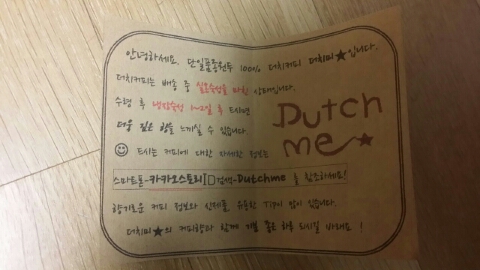 안녕하세요. 단일품종원두 100% 더치커피 더치미★입니다.
더치커피는 배송 중 실온숙성을 마친 상태입니다.
수령 후 냉장숙성 1~2일 후 드시면
더욱 깊은 맛을 느끼실 수 있습니다.
Dutch
me★
드시는 커피에 대한 자세한 정보는
스마트폰-카카오스토리ID검색-Dutchme 를 참조하세요!
향기로운 커피 정보와 신제품, 유용한 Tip이 많이 있습니다.
더치미★의 커피향과 함께 기분 좋은 하루 되시길 바래요!